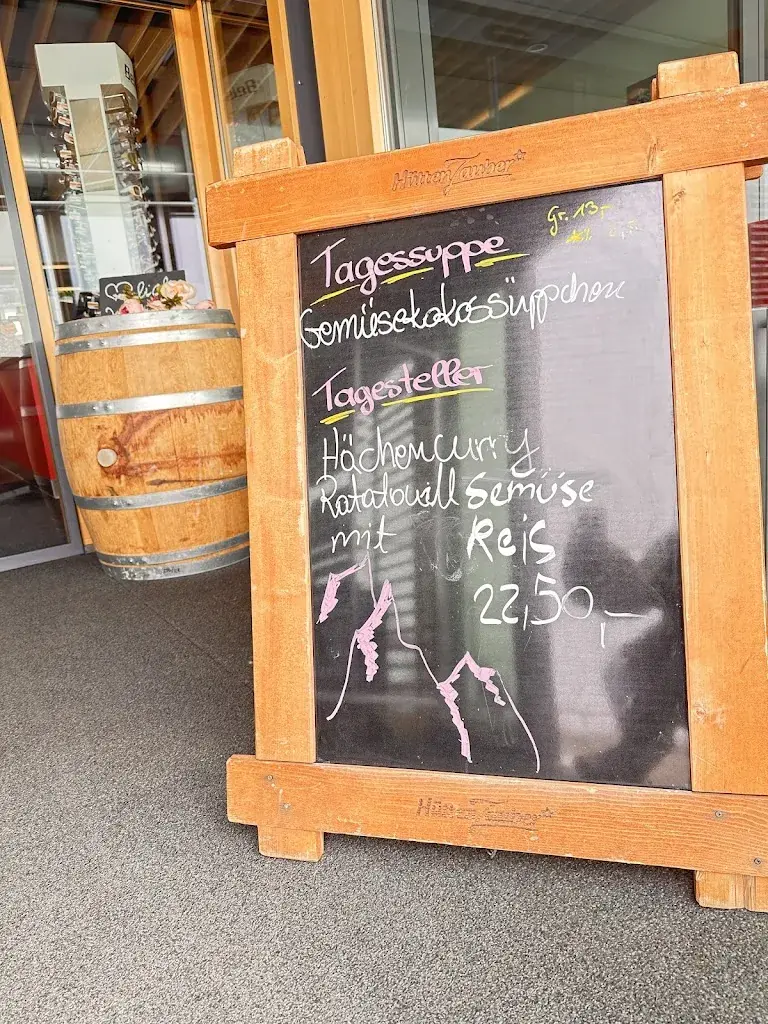 HüttenZauber
Tagessuppe
Gr. 13,-
Gemüsekokossüppchen
Tagesteller
Hächencurry
Ratatouill Gemüse
mit Reis
22,50,-
HüttenZauber